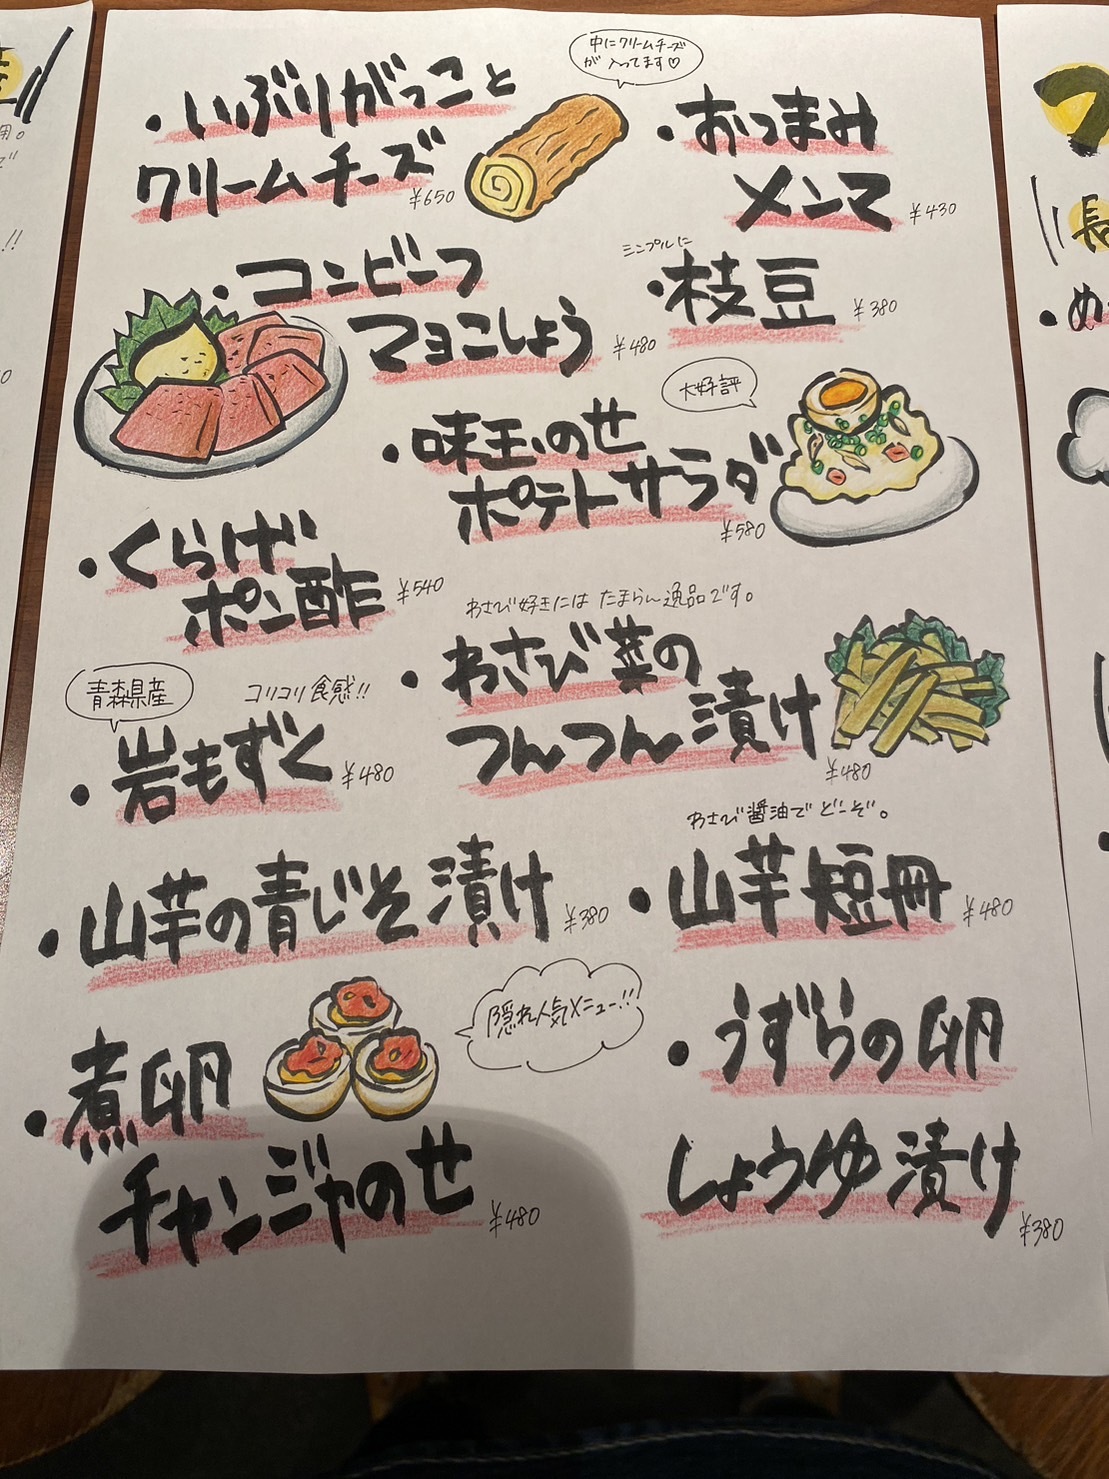 中にクリームチーズ
が入ってます♡
・いぶりがっこと
クリームチーズ
¥650
・おつまみ
メンマ
¥430
・コンビーフ
マヨこしょう
¥480
シンプルに
・枝豆
¥380
大好評
・味玉のせ
ポテトサラダ
¥580
・くらげ
ポン酢
¥540
わさび好きにはたまらん逸品です。
・わさび菜の
つんつん漬け
¥480
青森県産
コリコリ食感!!
・岩もずく
¥480
・山芋の青じそ漬け
¥380
わさび醤油でどーぞ。
・山芋短冊
¥480
・煮卵
チャンジャのせ
¥480
隠れ人気メニュー!!!
・うずらの卵
しょうゆ漬け
¥380
長
・め